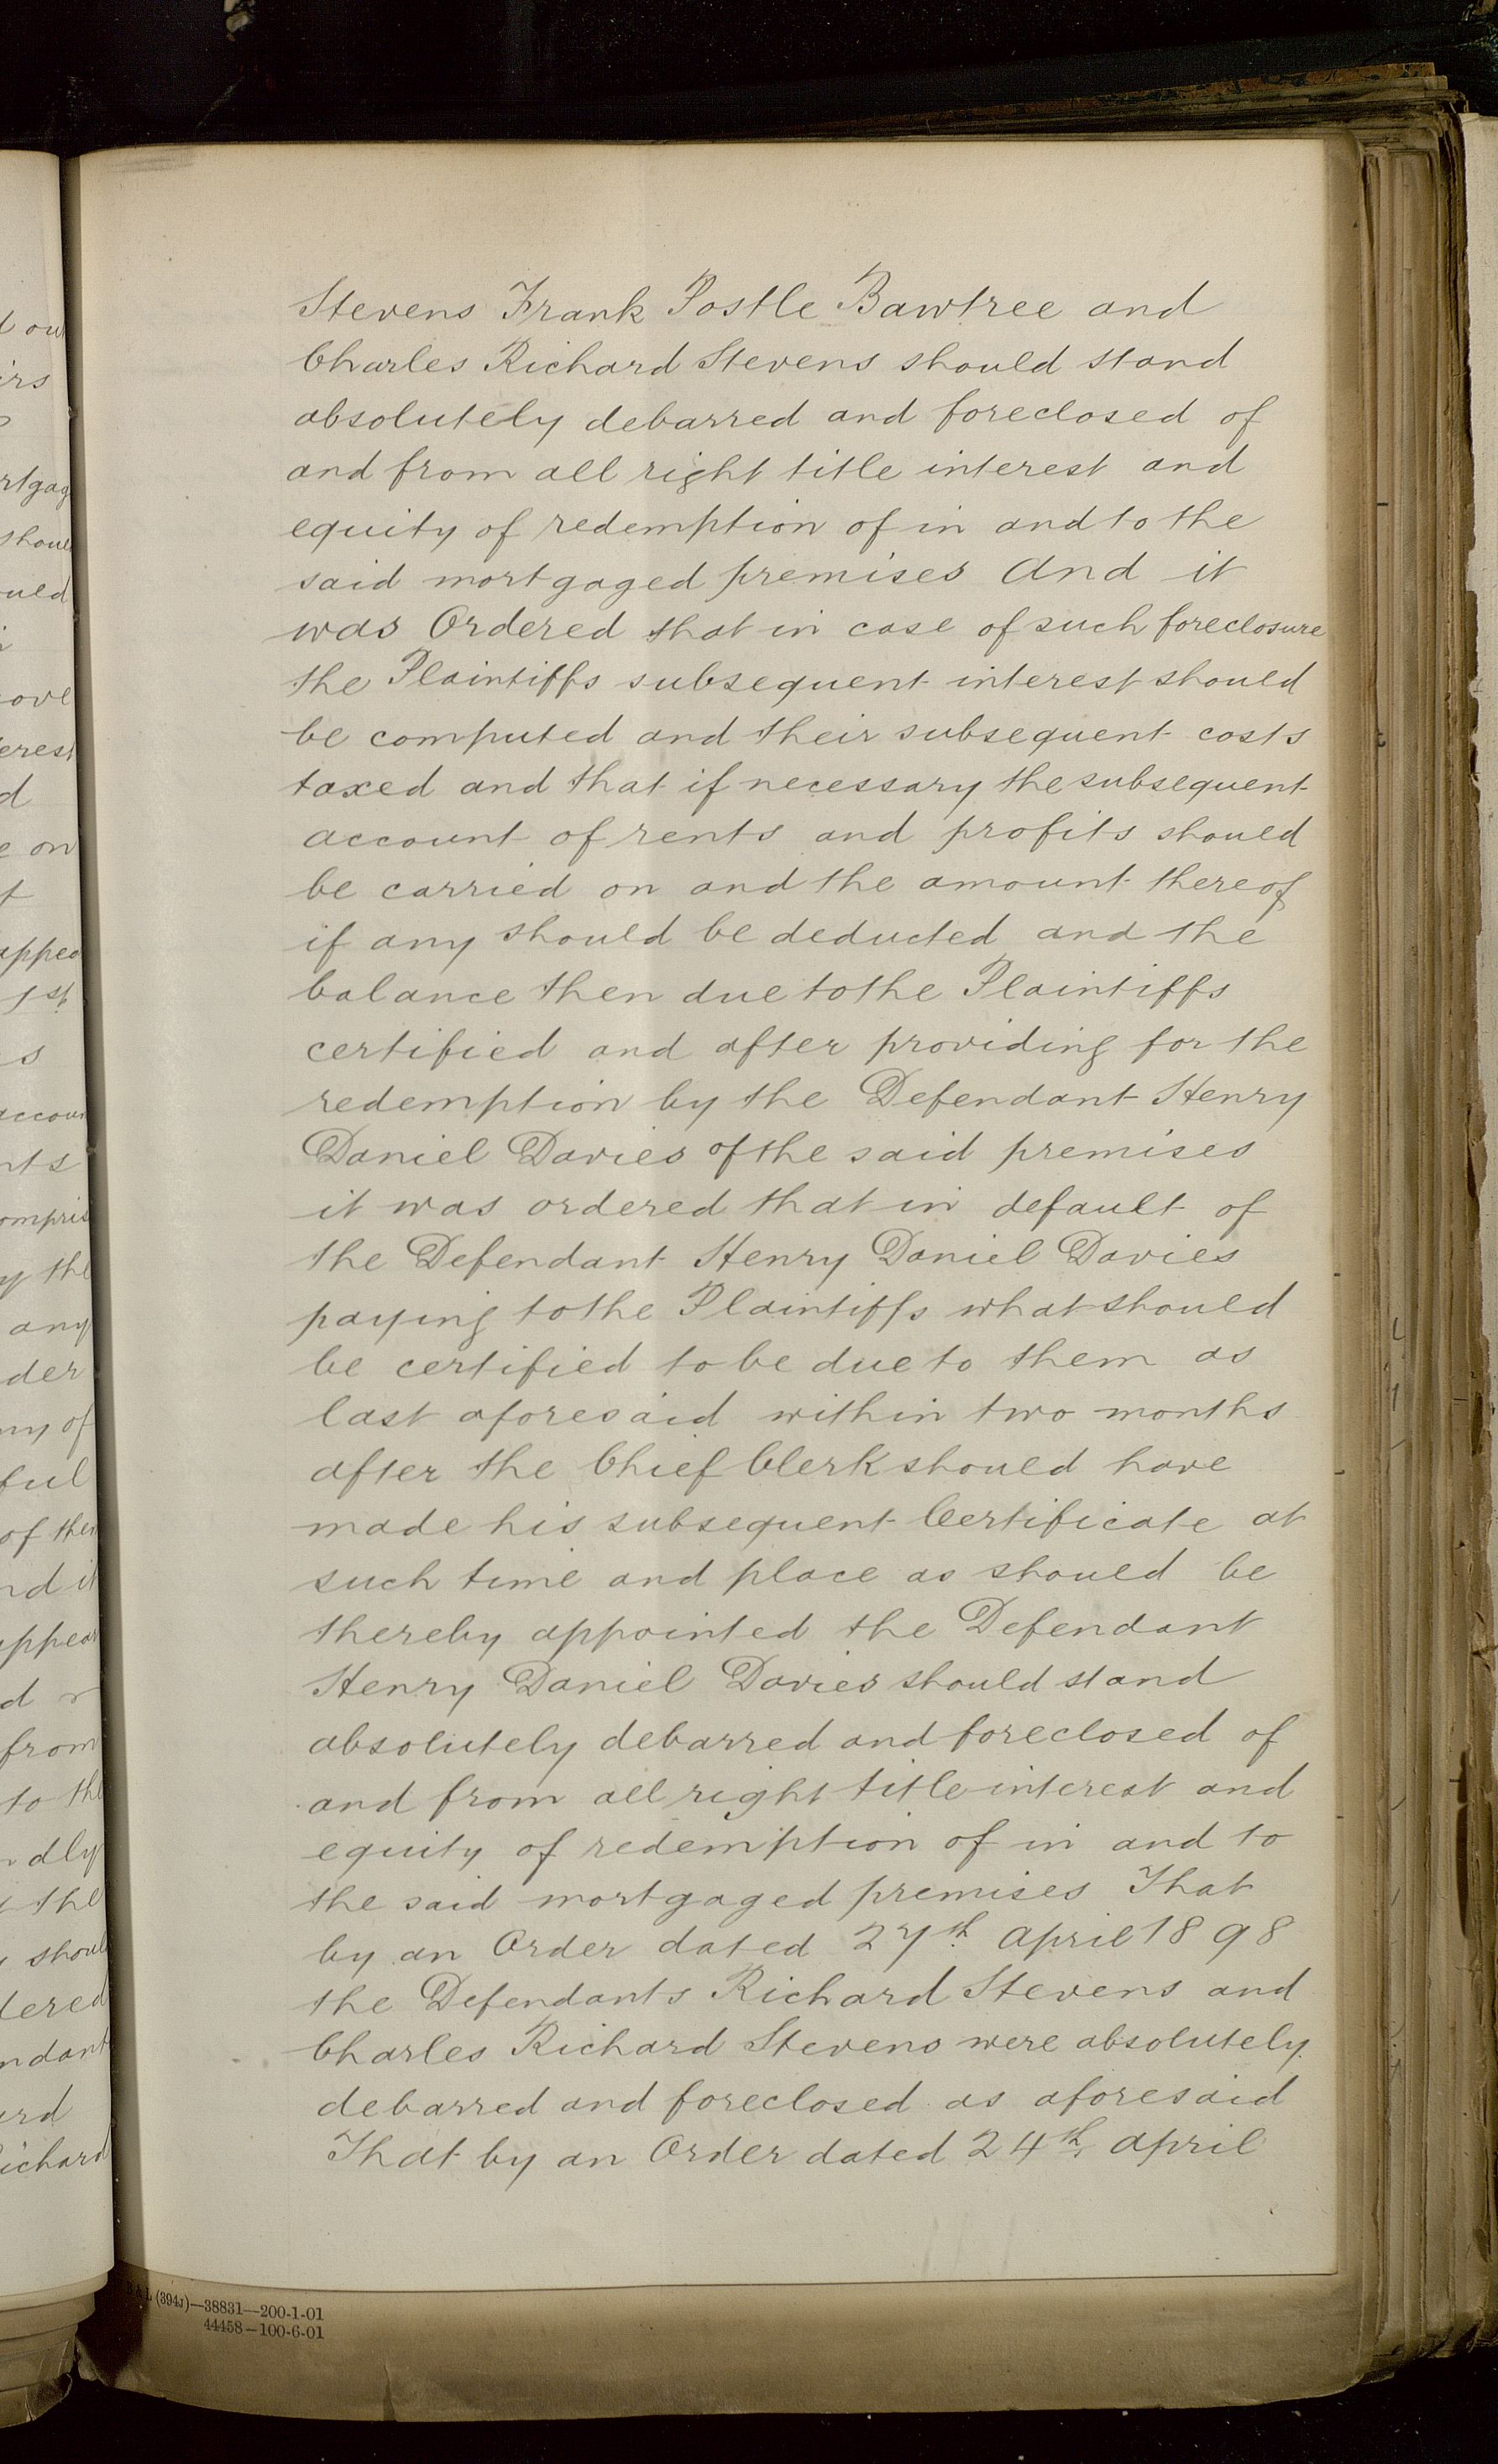 Stevens Frank Postle Bawtree and
Charles Richard Stevens should stand
absolutely debarred and foreclosed of
and from all right title interest and
equity of redemption of in and to the
said mortgaged premises And it
was Ordered that in case of such foreclosure
the Plaintiffs subsequent interest should
be computed and their subsequent costs
taxed and that if necessary the subsequent
account of rents and profits should
be carried on and the amount thereof
if any should be deducted and the
balance then due to the Plaintiffs
certified and after providing for the
redemption by the Defendant Henry
Daniel Davies of the said premises
it was ordered that in default of
the Defendant Henry Daniel Davies
paying to the Plaintiffs what should
be certified to be due to them as
last aforesaid within two months
after the Chief Clerk should have
made his subsequent Certificate at
such time and place as should be
thereby appointed the Defendant
Henry Daniel Davies should stand
absolutely debarred and foreclosed of
and from all right title interest and
equity of redemption of in and to
the said mortgaged premises That
by an Order dated 27th April 1898
the Defendants Richard Stevens and
Charles Richard Stevens were absolutely
debarred and foreclosed as aforesaid
That by an Order dated 24th April
(394J)—38831—200-1-01
44458—100-6-01